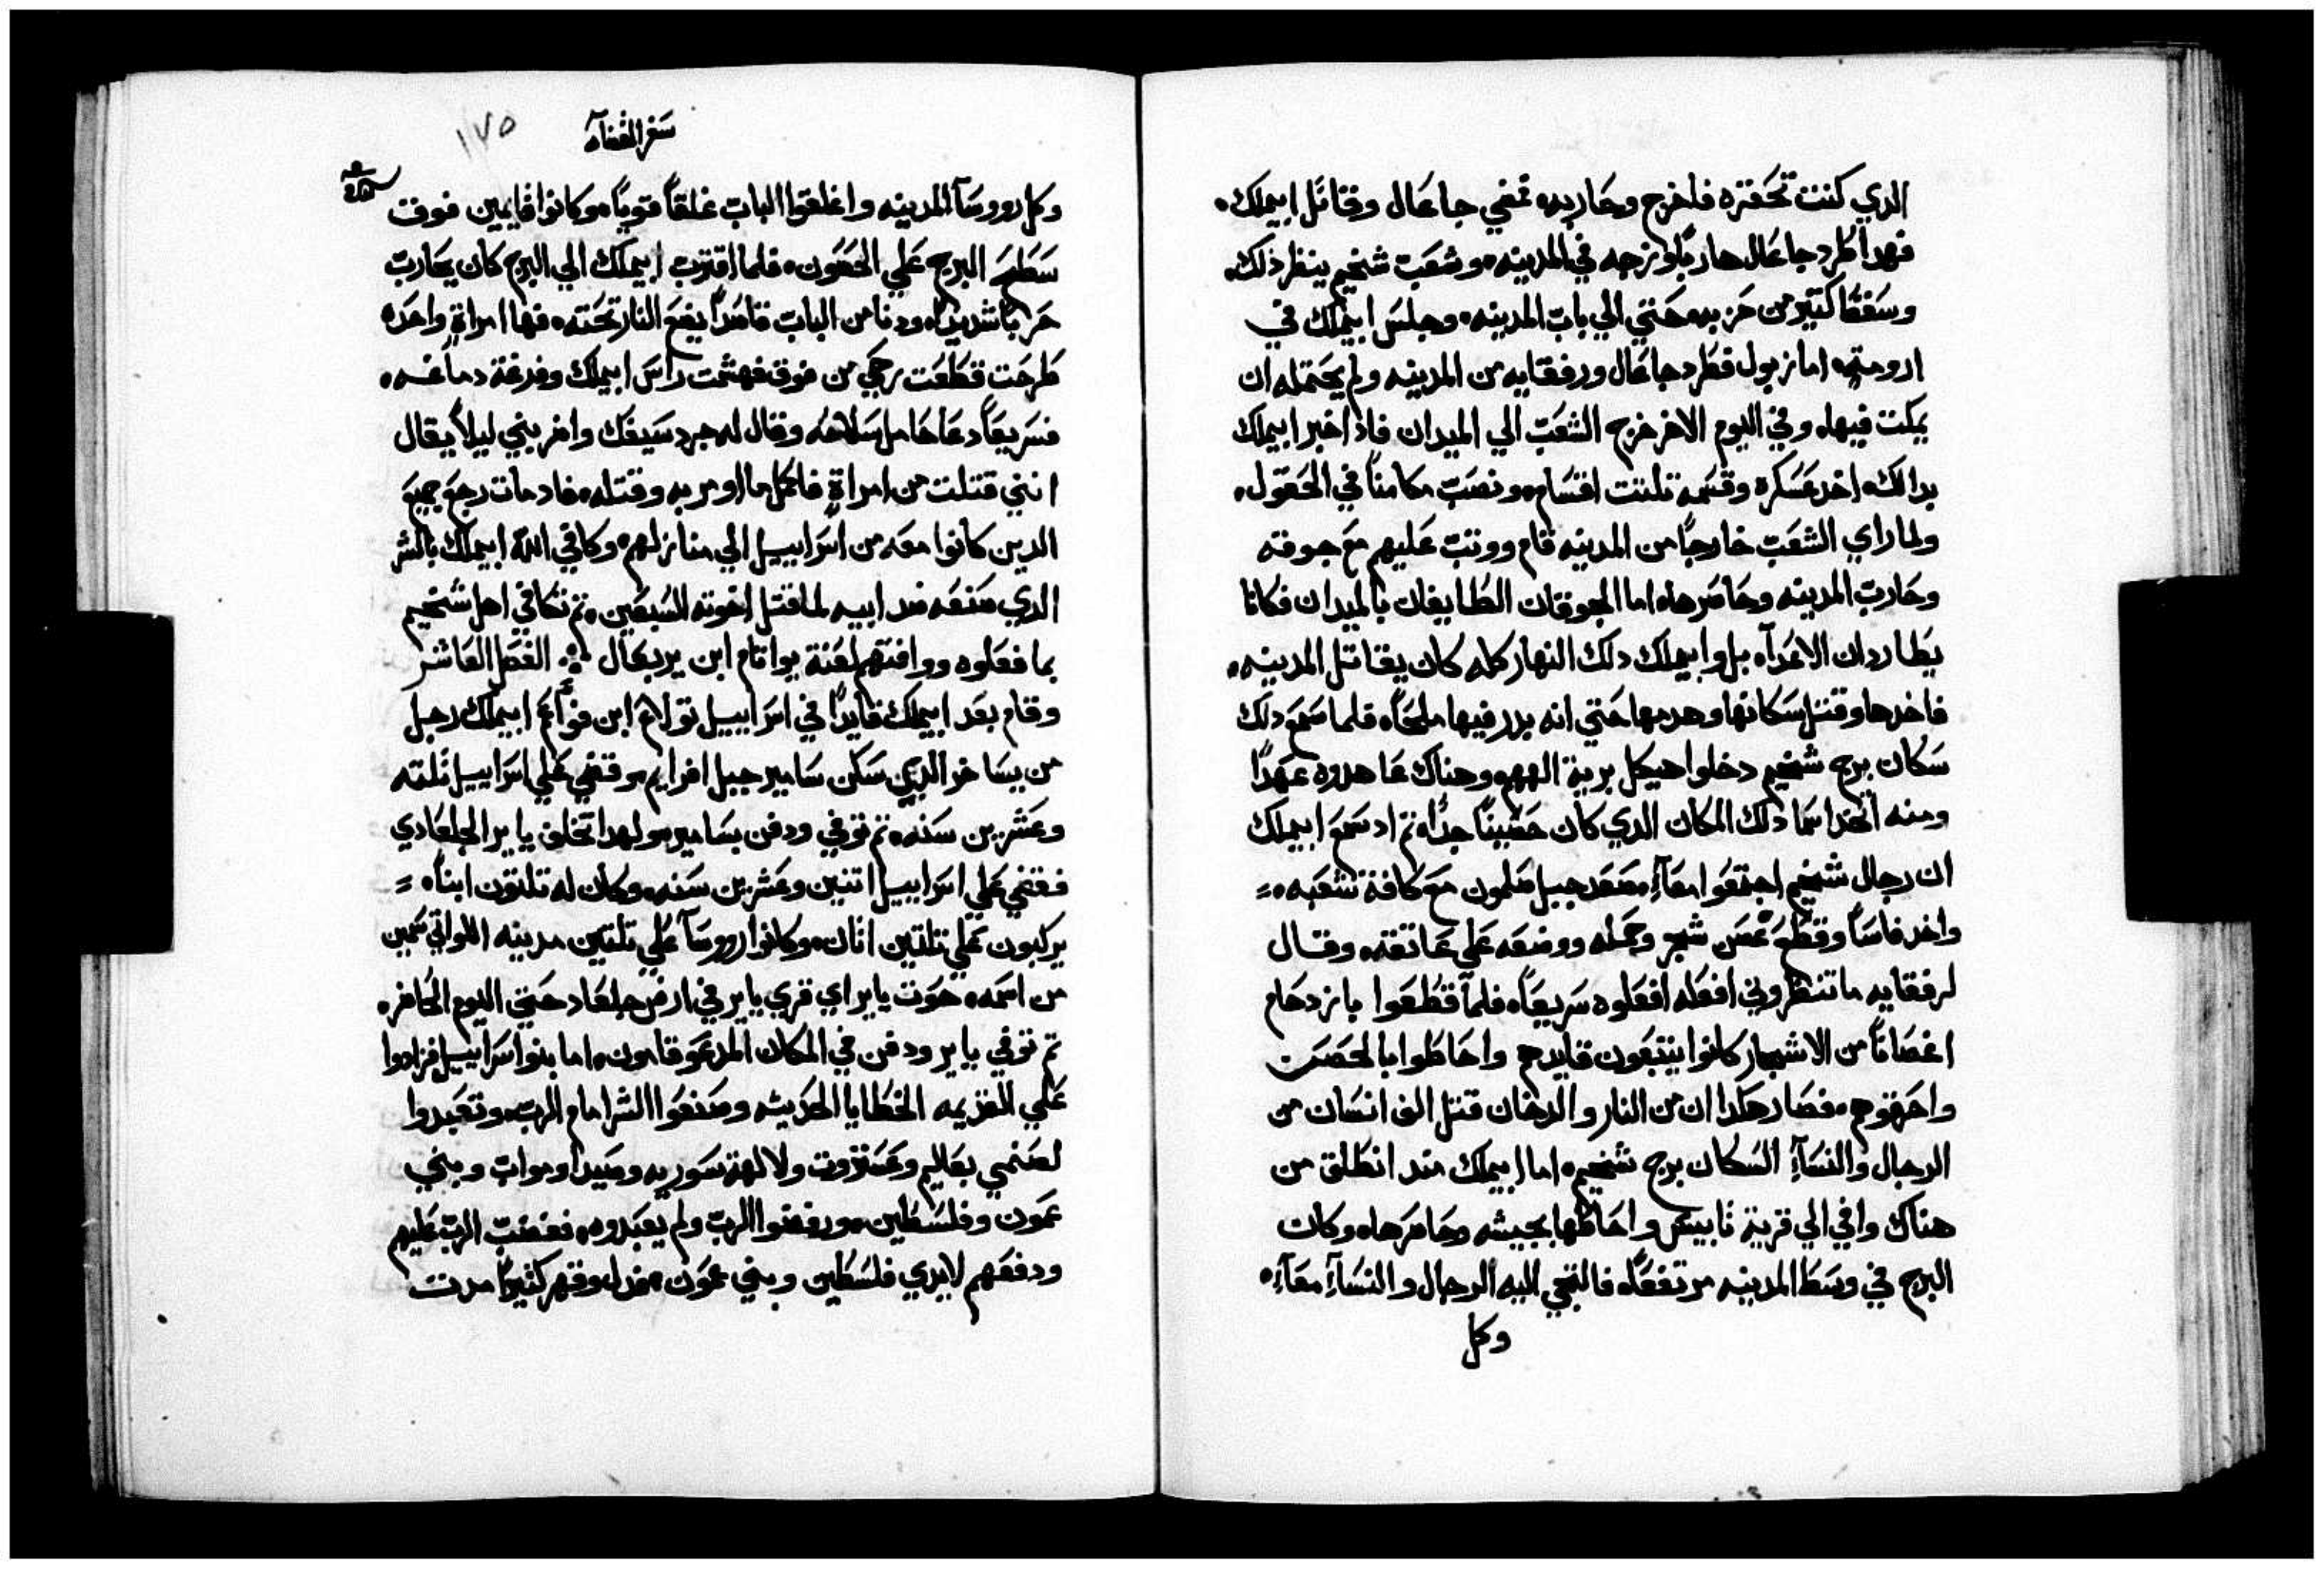 الدي كنت تحقره فاخرج وحاربه فمضي جاعال وقاتل ابيملك.
فهدا طرد جاعال هاربًا وزجه في المدينه. وشعب شخيم ينظر ذلك.
وسقط كتير من حزبه حتي الي باب المدينه. وجلس ابيملك في
ارومته. اما زبول فطرد جاعال ورفقايه من المدينه ولم يحتمله ان
يمكت فيها. وفي اليوم الاخر خرج الشعب الي الميدان فاذا خبر ابيملك
بدالك. اخد عسكره وقسمه تلتت اقسام. ونصب مكامنًا في الحقول.
ولما راي الشعب خارجًا من المدينه قام ووتب عليهم مع جوقته
وحارب المدينه وحاصرها. اما الجوقتان الطايفان بالميدان فكانا
يطاردان الاعدآء. بل وابيملك دلك النهار كله كان يقاتل المدينه.
فاخدها وقتل سكانها وهدمها حتي انه بدر فيها ملحًا. فلما سمع دلك
سكان برج شخيم دخلوا هيكل برية الههم. وهناك عاهدوه عهدًا
ومنه اتخد اسمًا دلك المكان الدي كان حصينًا جدًا. تم اد سمع ابيملك
ان رجال شخيم اجتمعوا معآءً. صعد جبل صلمون مع كافة شعبه. =
واخد فاسًا وقطع غصن شجر وحمله ووضعه علي عاتقه. وقال
لرفقايه ما تنظروني افعله افعلوه سريعًا. فلمآ قطعوا بازدحام
اغصانًا من الاشجار كانوا يتبعون قايدهم واحاطوا بالحصن
واحرقوه. فصار هكدا ان من النار والدخان قتل الف انسان من
الرجال والنسآءِ السكان برج شخيم. اما ابيملك مند انطلق من
هناك وافي الي قرية تابيس واحاطها بجيشه وحاصرها. وكان
البرج في وسط المدينه مرتفعًا. فالتجي اليه الرجال والنسآءِ معآءً.
وكل
سفر القضاه
١٧٥
وكل رووسآ المدينه واغلقوا الباب غلقًا قويًا. وكانوا قايمين فوق
سطح البرج علي الحصون. فلما اقترب ابيملك الي البرج كان يحارب
حربًا شديدًا. ودنا من الباب قاصدًا يضع النار تحته. فها امراةٍ واحده
طرحت قطعت رحي من فوق فهشمت راس ابيملك وفدغة دماغه.
فسريعًا دعا حامل سلاحه وقال له جرد سيفك واضربني ليلا يقال
انني قتلت من امراةٍ فاكمل ما اومر به وقتله. فاد مات رجع جميع
الدين كانوا معه من اسراييل الي منازلهم. وكافي اللّه ابيملك بالشر
الدي صنعه ضد ابيه لما قتل اخوته السبعين. تم تكافي اهل شخيم
بما فعلوه ووافتهم لعنة يواتام ابن يربعال الفصل العاشر
وقام بعد ابيملك قايدًا في اسراييل تولاع ابن فواع ابيملك رجل
من يساخر الدي سكن سامير جبل افرايم. وقضي علي اسراييل تلته
وعشرين سنه. تم توفي ودفن بسامير. ولهدا تخلف ياير الجلعادي
فقضي علي اسراييل اتنين وعشرين سنه. وكان له تلتون ابنًا. =
يركبون علي تلتين اتان. وكانوا رووسآ علي تلتين مدينه اللواتي سمين
من اسمه. حوت ياير اي قري ياير في ارض جلعاد حتي اليوم الحاضر.
تم توفي ياير ودفن في المكان المدعو قامون. اما بنوا اسراييل فزادوا
علي القديمه الخطايا الحديته وصنعوا الشر امام الرب. وتعبدوا
لصنمي بعاليم وعستروت ولالهة سوريه وصيدا ومواب وبني
عمون وفلسطين. ورفضوا الرب ولم يعبدوه. فغضب الرب عليهم
ودفعهم لايدي فلسطين وبني عمون.